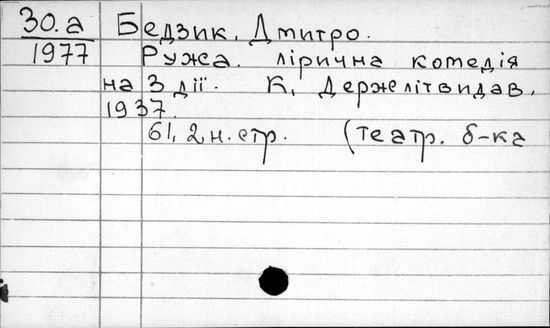 30.а Бедзик, Дмитро.
1977 Ружа. лірична комедія
на 3 дії. К, Держлітвидав,
1937.
61, 2 н. стр. (театр. б-ка